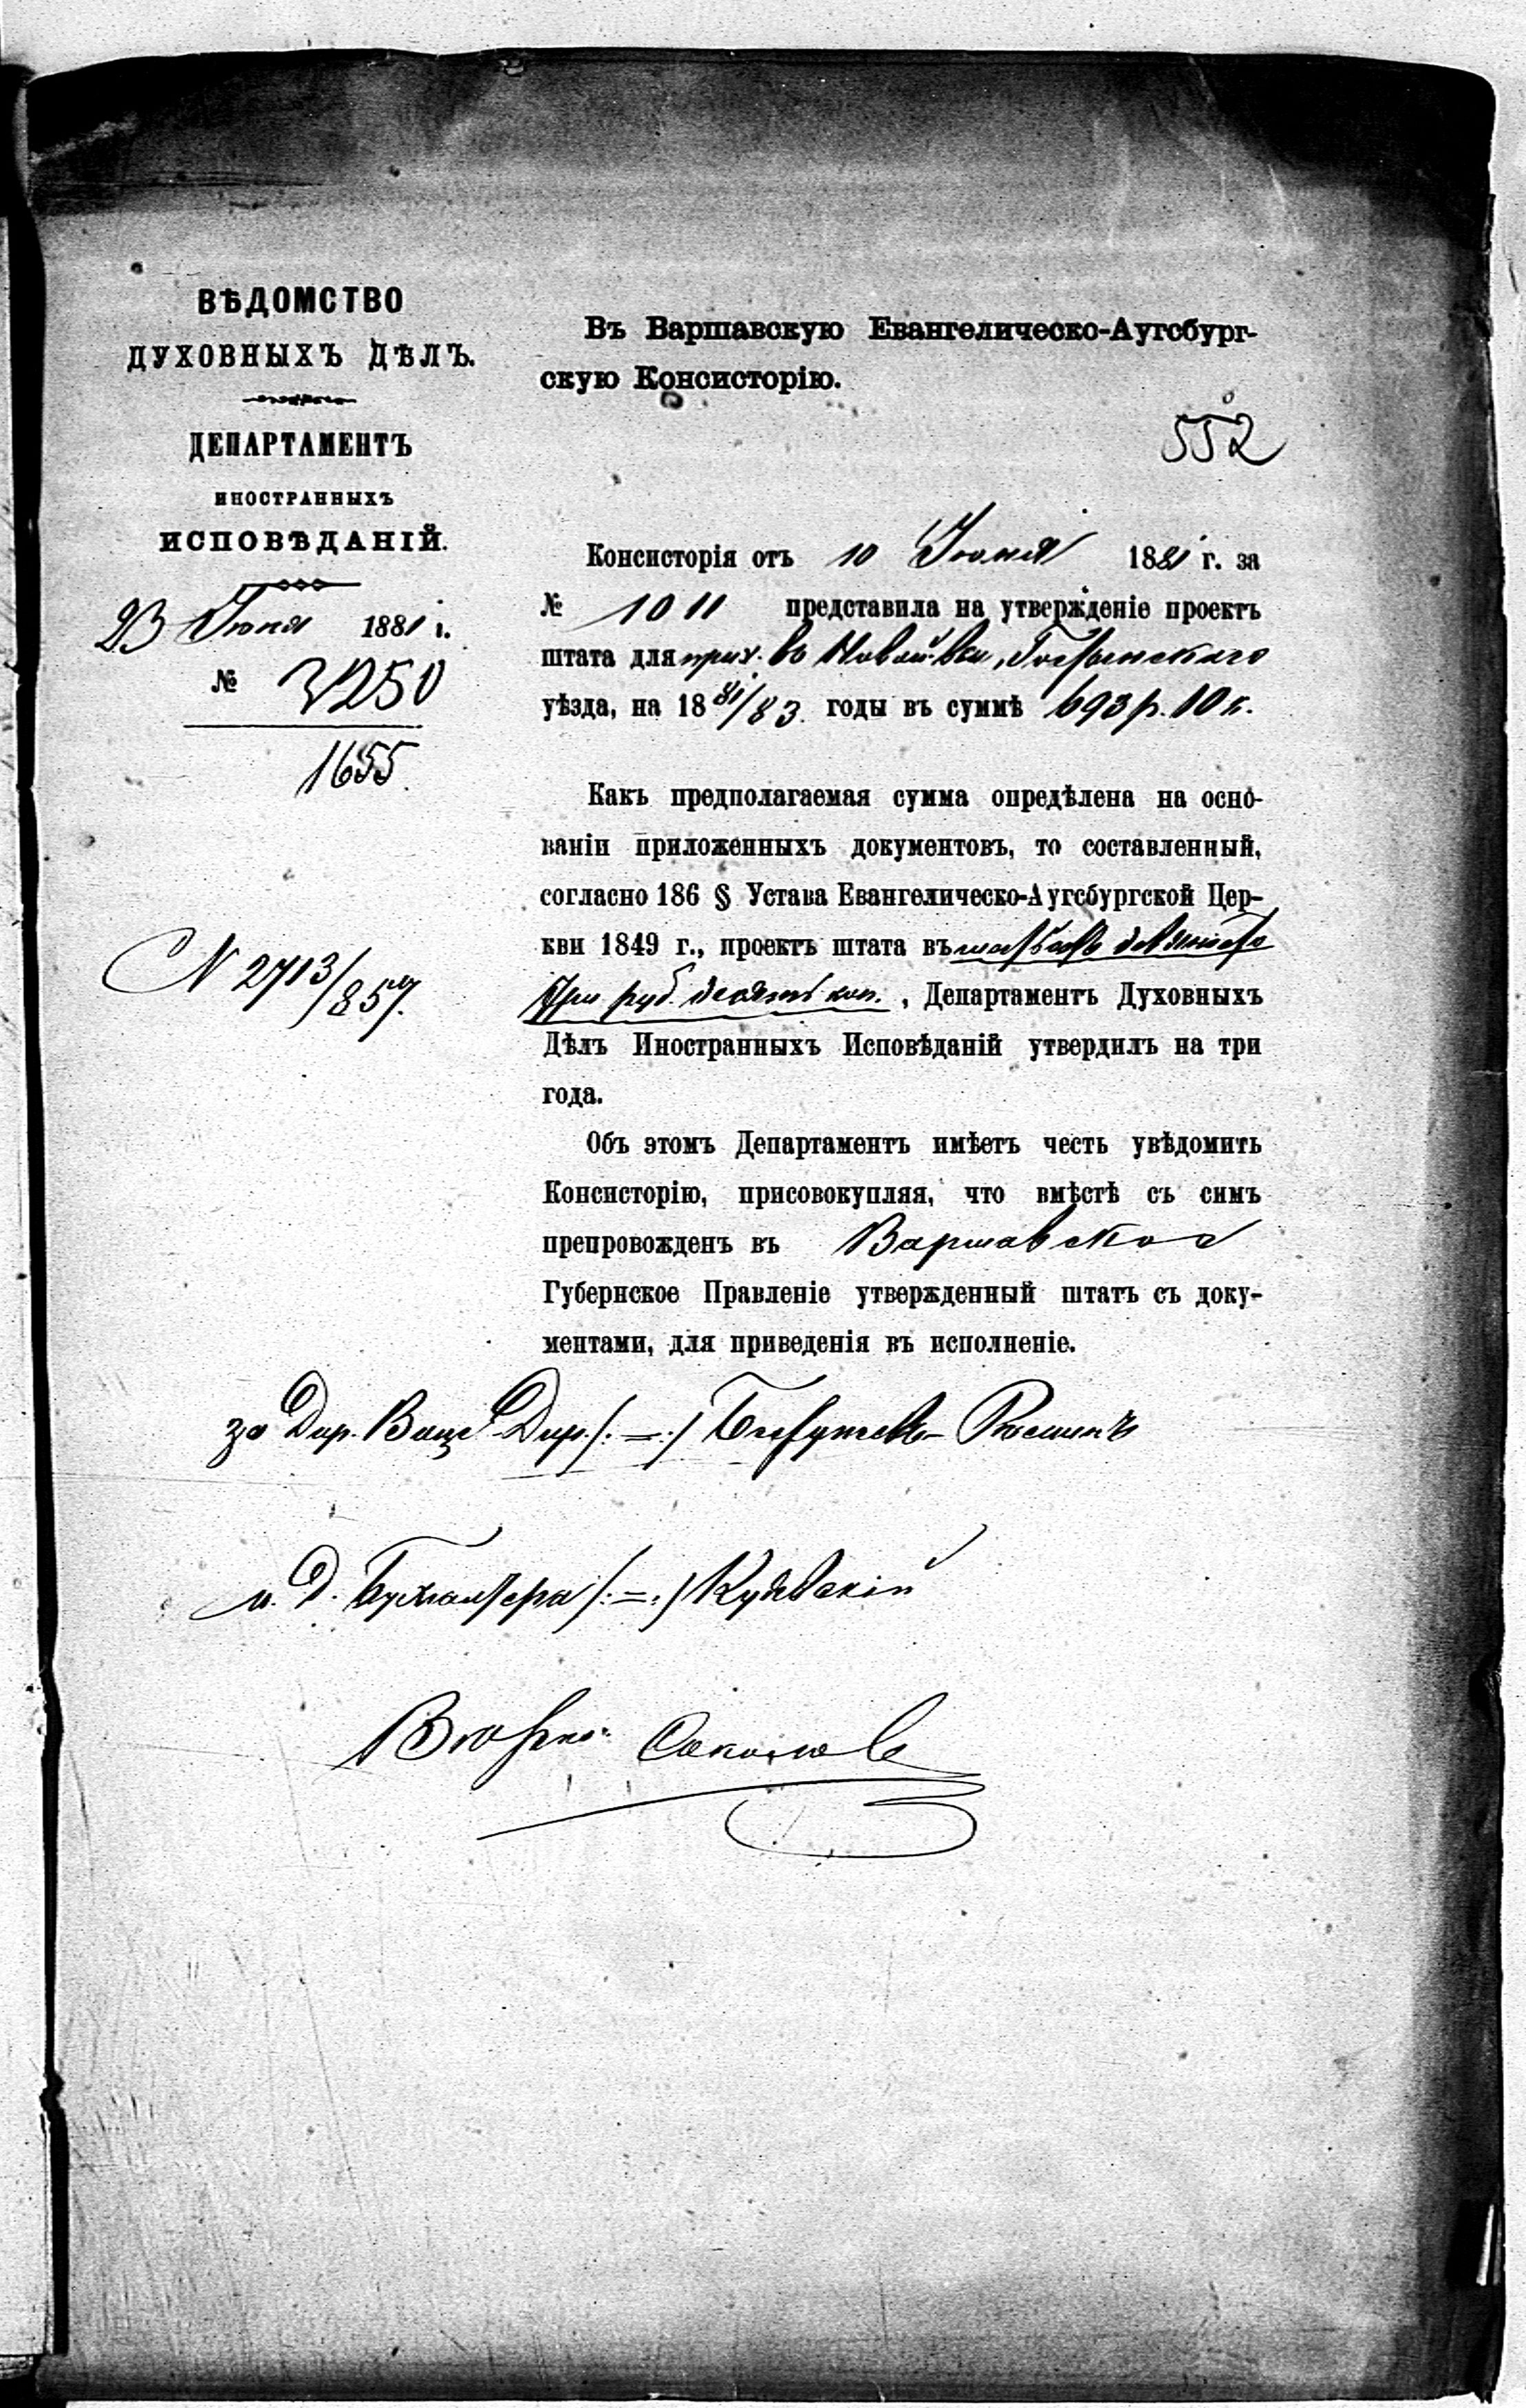 ВѢДОМСТВО
ДУХОВНЫХЪ ДѢЛЪ.
ДЕПАРТАМЕНТЪ
ИНОСТРАННЫХЪ
ИСПОВѢДАНІЙ.
23 Іюня 1881 г.
№ 3250
1655.
N 2713/857.
Въ Варшавскую Евангелическо-Аугсбург-
скую Консисторію.
552
Консисторія отъ 10 Іюня 1881 г. за
№ 1011 представила на утвержденіе проектъ
штата для прих. въ Новой-вси, Гостынскаго
уѣзда, на 1881/83 годы въ суммѣ 693 р. 10 к.
Какъ предполагаемая сумма опредѣлена на осно-
ваніи приложенныхъ документовъ, то составленный,
согласно 186 § Устава Евангелическо-Аугсбургской Цер-
кви 1849 г., проектъ штата въ шестьсотъ девяносто
три руб. десять коп., Департаментъ Духовныхъ
Дѣлъ Иностранныхъ Исповѣданій утвердилъ на три
года.
Объ этомъ Департаментъ имѣетъ честь увѣдомить
Консисторію, присовокупляя, что вмѣстѣ съ симъ
препровожденъ въ Варшавское
Губернское Правленіе утвержденный штатъ съ доку-
ментами, для приведенія въ исполненіе.
за Дир. Вице-Дир. /:=:/ Бестужевъ-Рюминъ
и. д. Бухгалтера /:=:/
Вѣрно: Соколов